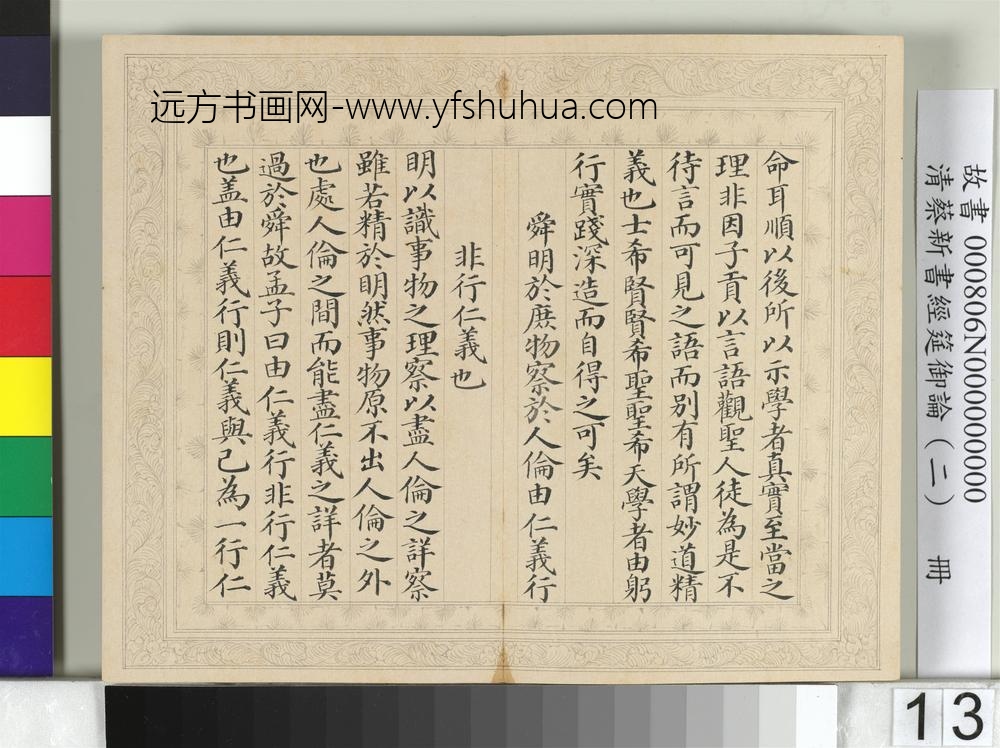 远方书画网-www.yfshuhua.com
命耳順以後所以示學者真實至當之
理非因子貢以言語觀聖人徒為是不
待言而可見之語而別有所謂妙道精
義也士希賢賢希聖聖希天學者由躬
行實踐深造而自得之可矣
舜明於庶物察於人倫由仁義行
非行仁義也
明以識事物之理察以盡人倫之詳察
雖若精於明然事物原不出人倫之外
也處人倫之間而能盡仁義之詳者莫
過於舜故孟子曰由仁義行非行仁義
也盖由仁義行則仁義與己為一行仁
故書 000806N000000000
清蔡新書經筵御論(二) 冊
13